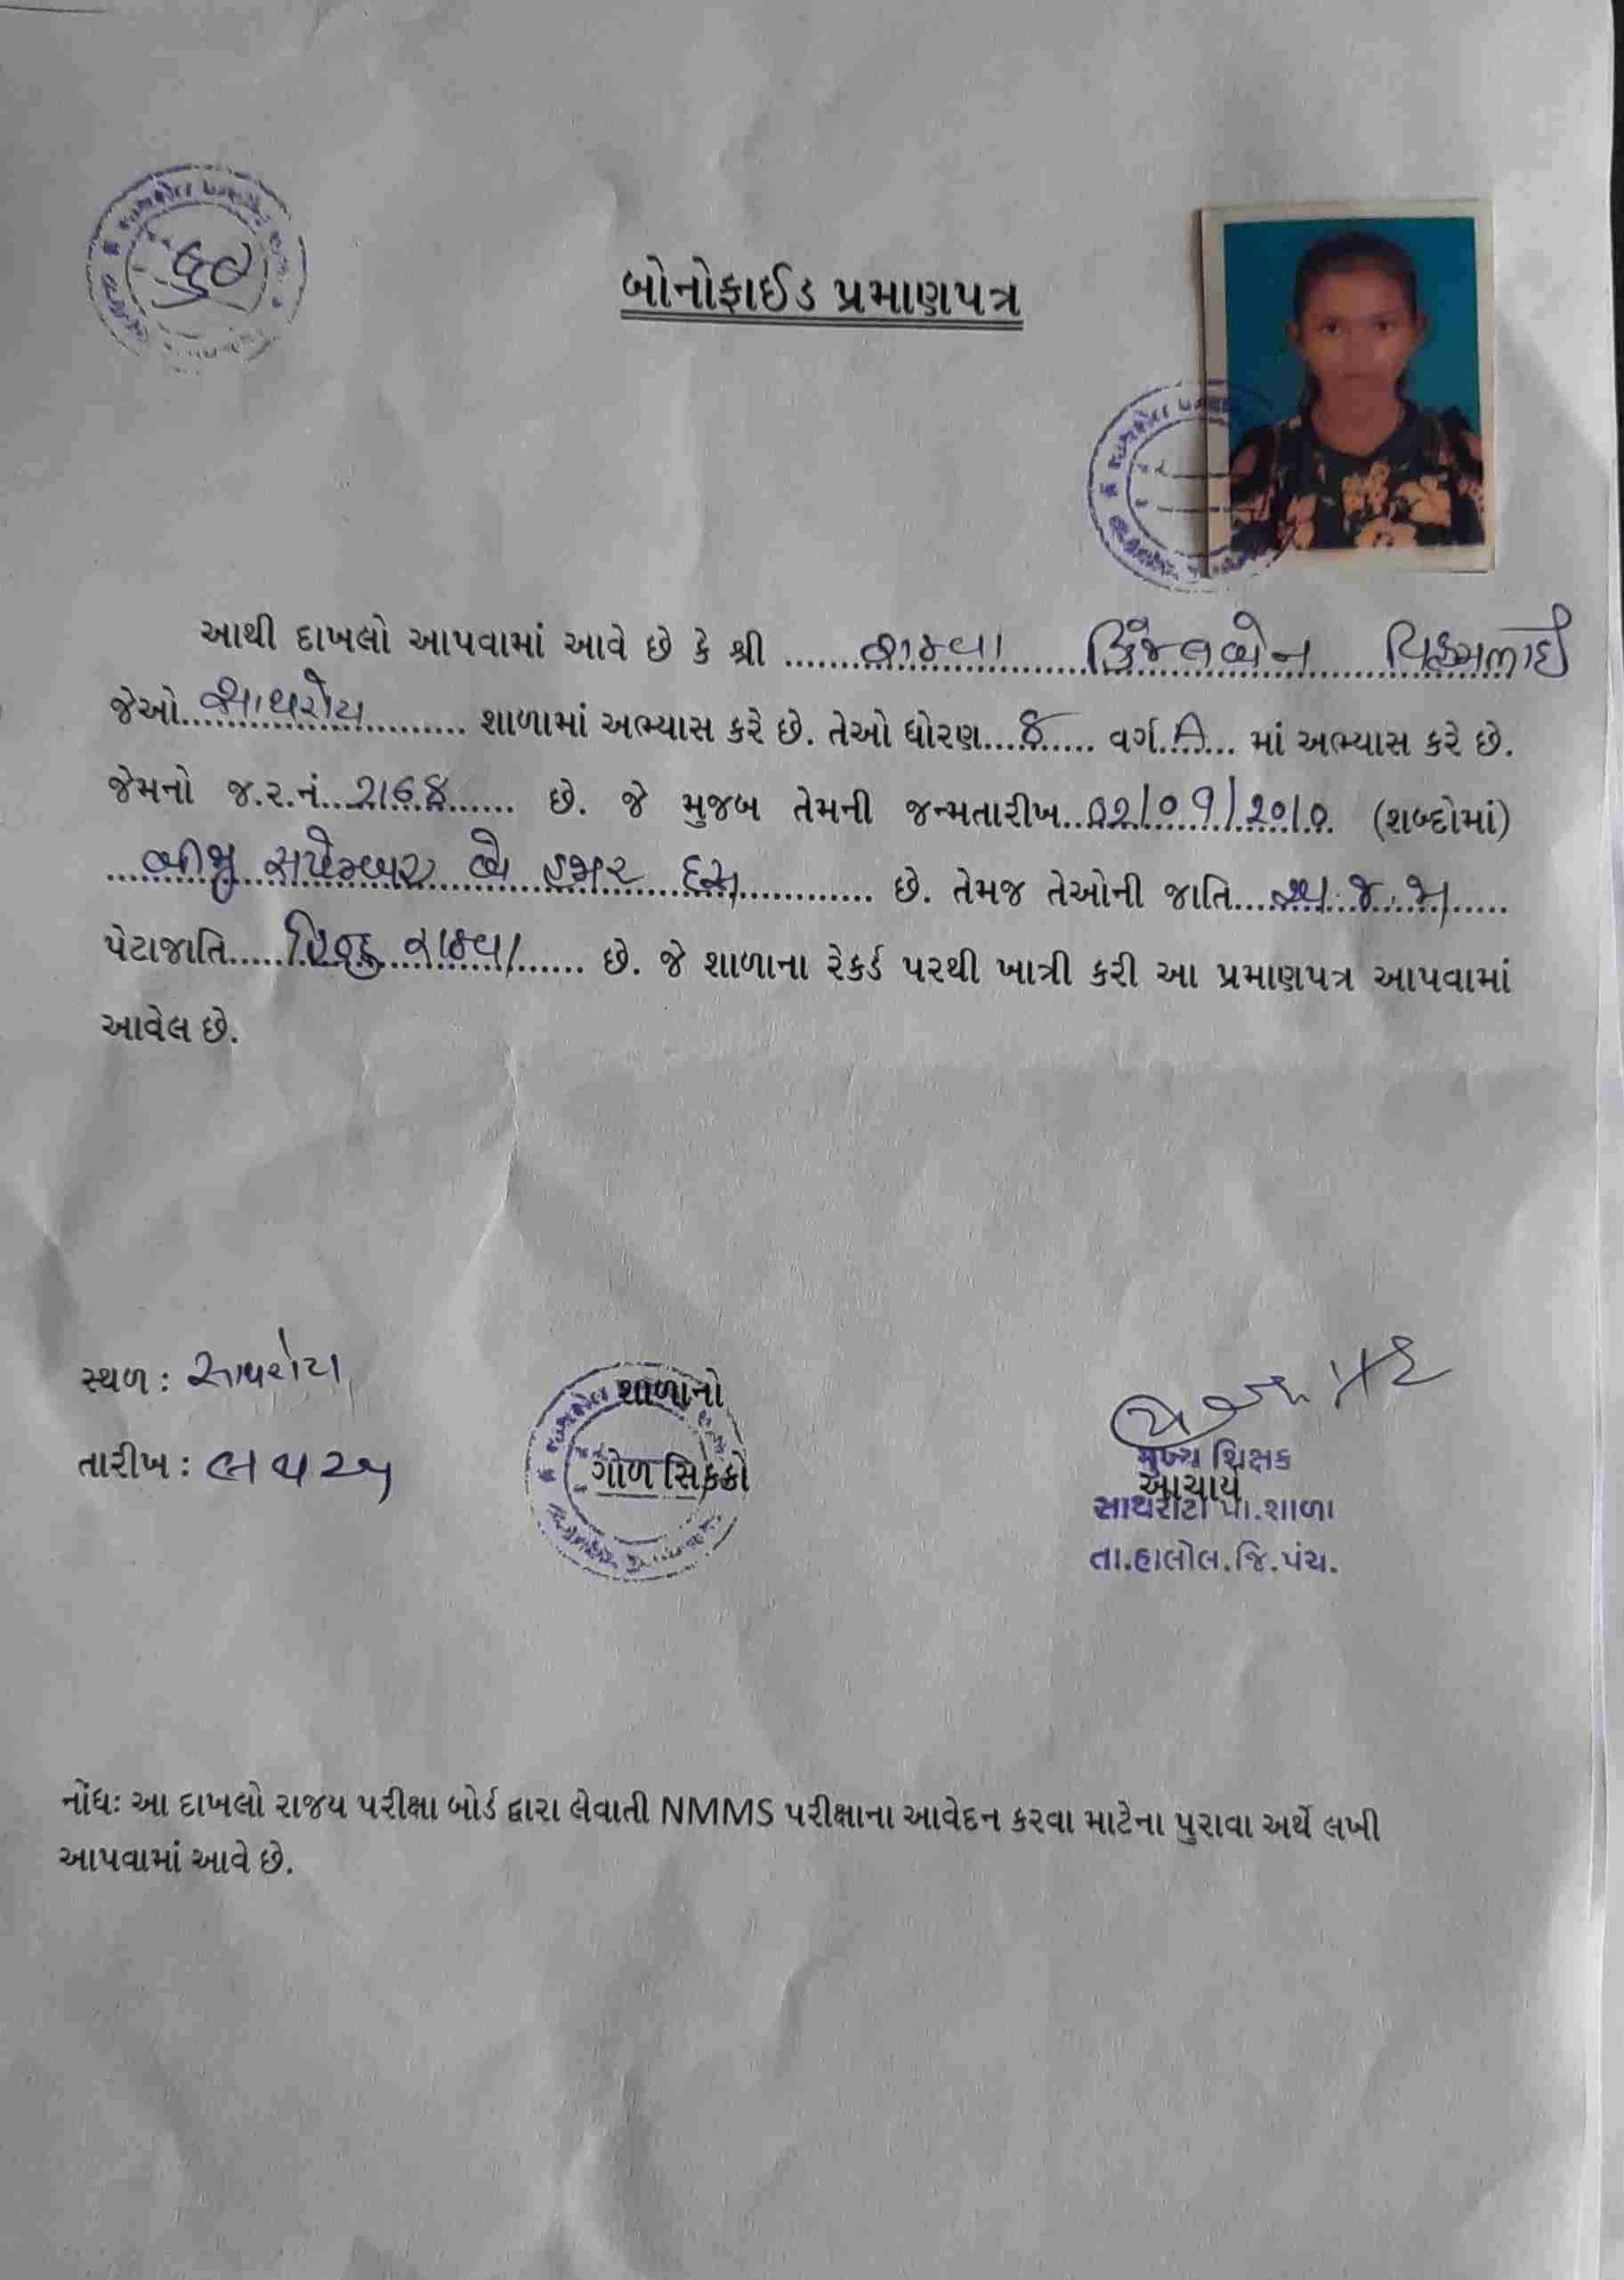 બોનોફાઈડ પ્રમાણપત્ર
આથી દાખલો આપવામાં આવે છે કે શ્રી ............ રાઠવા કિંજલબેન વિક્રમભાઈ
જેઓ સાથરોટા ............ શાળામાં અભ્યાસ કરે છે. તેઓ ધોરણ.... 8 ...... વર્ગ.. A .... માં અભ્યાસ કરે છે.
જેમનો જ.ર.નં. ............ છે. જે મુજબ તેમની જન્મતારીખ.. 02/09/2010 (શબ્દોમાં)
બીજી સપ્ટેમ્બર બે હજાર દસ ............ છે. તેમજ તેઓની જાતિ.... અ.જ.જા ....
પેટાજાતિ..... હિન્દુ રાઠવા ...... છે. જે શાળાના રેકર્ડ પરથી ખાત્રી કરી આ પ્રમાણપત્ર આપવામાં
આવેલ છે.
સ્થળ : સાથરોટા
તારીખ :
શાળાનો
ગોળ સિક્કો
મુખ્ય શિક્ષક
આચાર્ય
સાથરોટા પ્રા.શાળા
તા.હાલોલ.જિ.પંચ.
નોંધઃ આ દાખલો રાજય પરીક્ષા બોર્ડ દ્વારા લેવાતી NMMS પરીક્ષાના આવેદન કરવા માટેના પુરાવા અર્થે લખી
આપવામાં આવે છે.